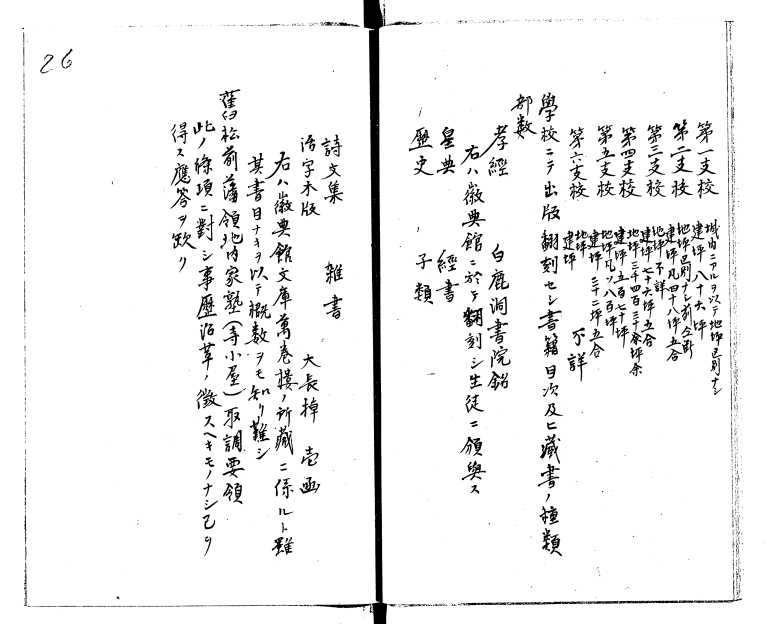 第一支校 城内ニアルヲ以テ地坪區別ナシ
建坪 八十六坪
第二支校 地坪區別ナシ前仝断
建坪凡四十八坪五合
第三支校 地坪不詳
建坪七十六坪五合
第四支校 地坪三千四百三十余坪余
建坪五百七十坪
第五支校 地坪凡ソ八百坪
建坪 三十二坪五合
第六支校 地坪
建坪 不詳
學校ニテ出版翻刻セシ書籍目次及ヒ藏書ノ種類
部数
孝經 白鹿洞書院銘
右ハ徽典館ニ於テ翻刻シ生徒ニ頒與ス
皇典 經書
歴史 子類
26
詩文集 雜書
活字木版 大長掉 壱函
右ハ徽典館文庫萬巻樓ノ所藏ニ係ルト雖
其書目ナキヲ以テ概数ヲモ知リ難シ
舊松前藩領地内家塾(寺小屋)取調要領
此ノ條項ニ對シ事歴沿革ノ徴スヘキモノナシ乙リ
得ス應答ヲ欠ク